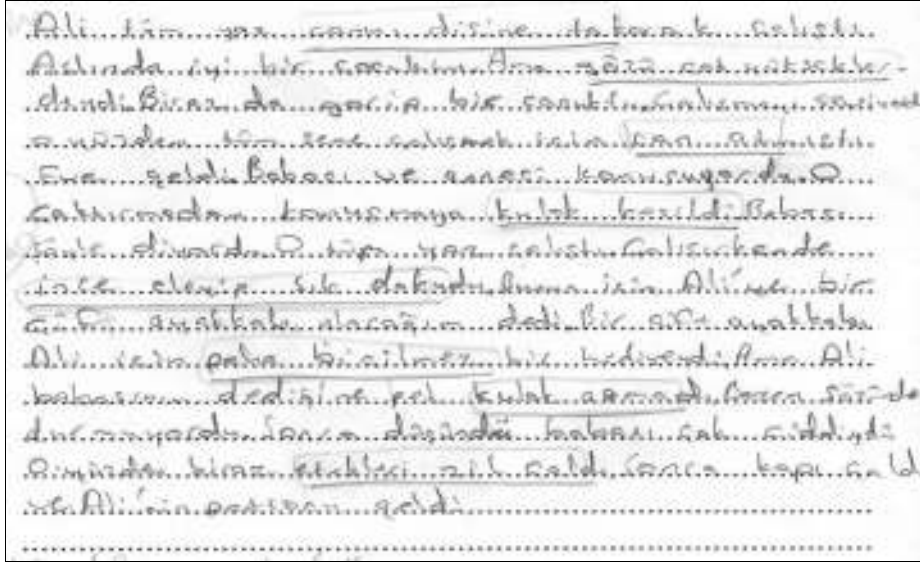 Ali tüm yaz canını dişine takarak çalıştı.
Aslında iyi bir çocuktu. Ama gözü çok yüksekler-
dendi. Biraz da garip bir çocuktu. Çalışmayı
o yüzden tüm sene çalışmak için can atmıştı.
Eve geldi. Babası ve annesi konuşuyordu. O
çaktırmadan konuşmaya kulak kesildi. Babası
şöyle diyordu. O tüm yaz çalıştı. Çalışırkende
ince eleyip sık dokudu. Bunun için Ali'ye bir
çift ayakkabı alacağım dedi. Bir çift ayakkabı
Ali için paha biçilmez bir hediyeydi. Ama Ali
babasının dediğine pek kulak asmadı. Bazen sözünde
durmuyordu. Sonra düşündü babası çok ciddiydi
O yüzden biraz etekleri zil çaldı. Sonra kapı çaldı
ve Ali'nin patronu geldi.